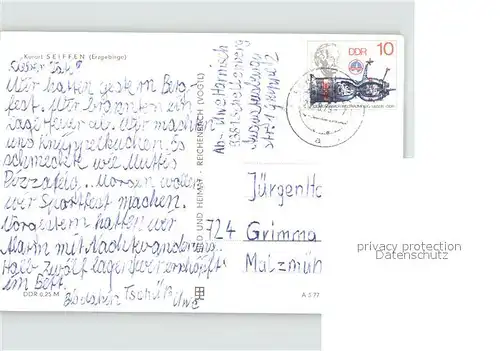 Kurort SEIFFEN (Erzgebirge)
Lieber
Wir hatten gestern Berg-
fest. Wir brannten ein
Lagerfeuer ab. Wir machten
uns Knüppelkuchen. Es
schmeckte wie Muttis
Pizzateig. Morgen wollen
wir Sportfest machen.
Vorgestern hatten wir
Alarm mit Nachtwanderung.
Halb zwölf lagen wir erschöpft
im Bett.
Bis dahin Tschüß
Uwe
DDR 0,25 M
A 5 77
BILD UND HEIMAT · REICHENBACH (VOGTL)
Abs. Uwe
DDR 10
Jürgen
724 Grimma
Malzmüh
privacy protection
Datenschutz